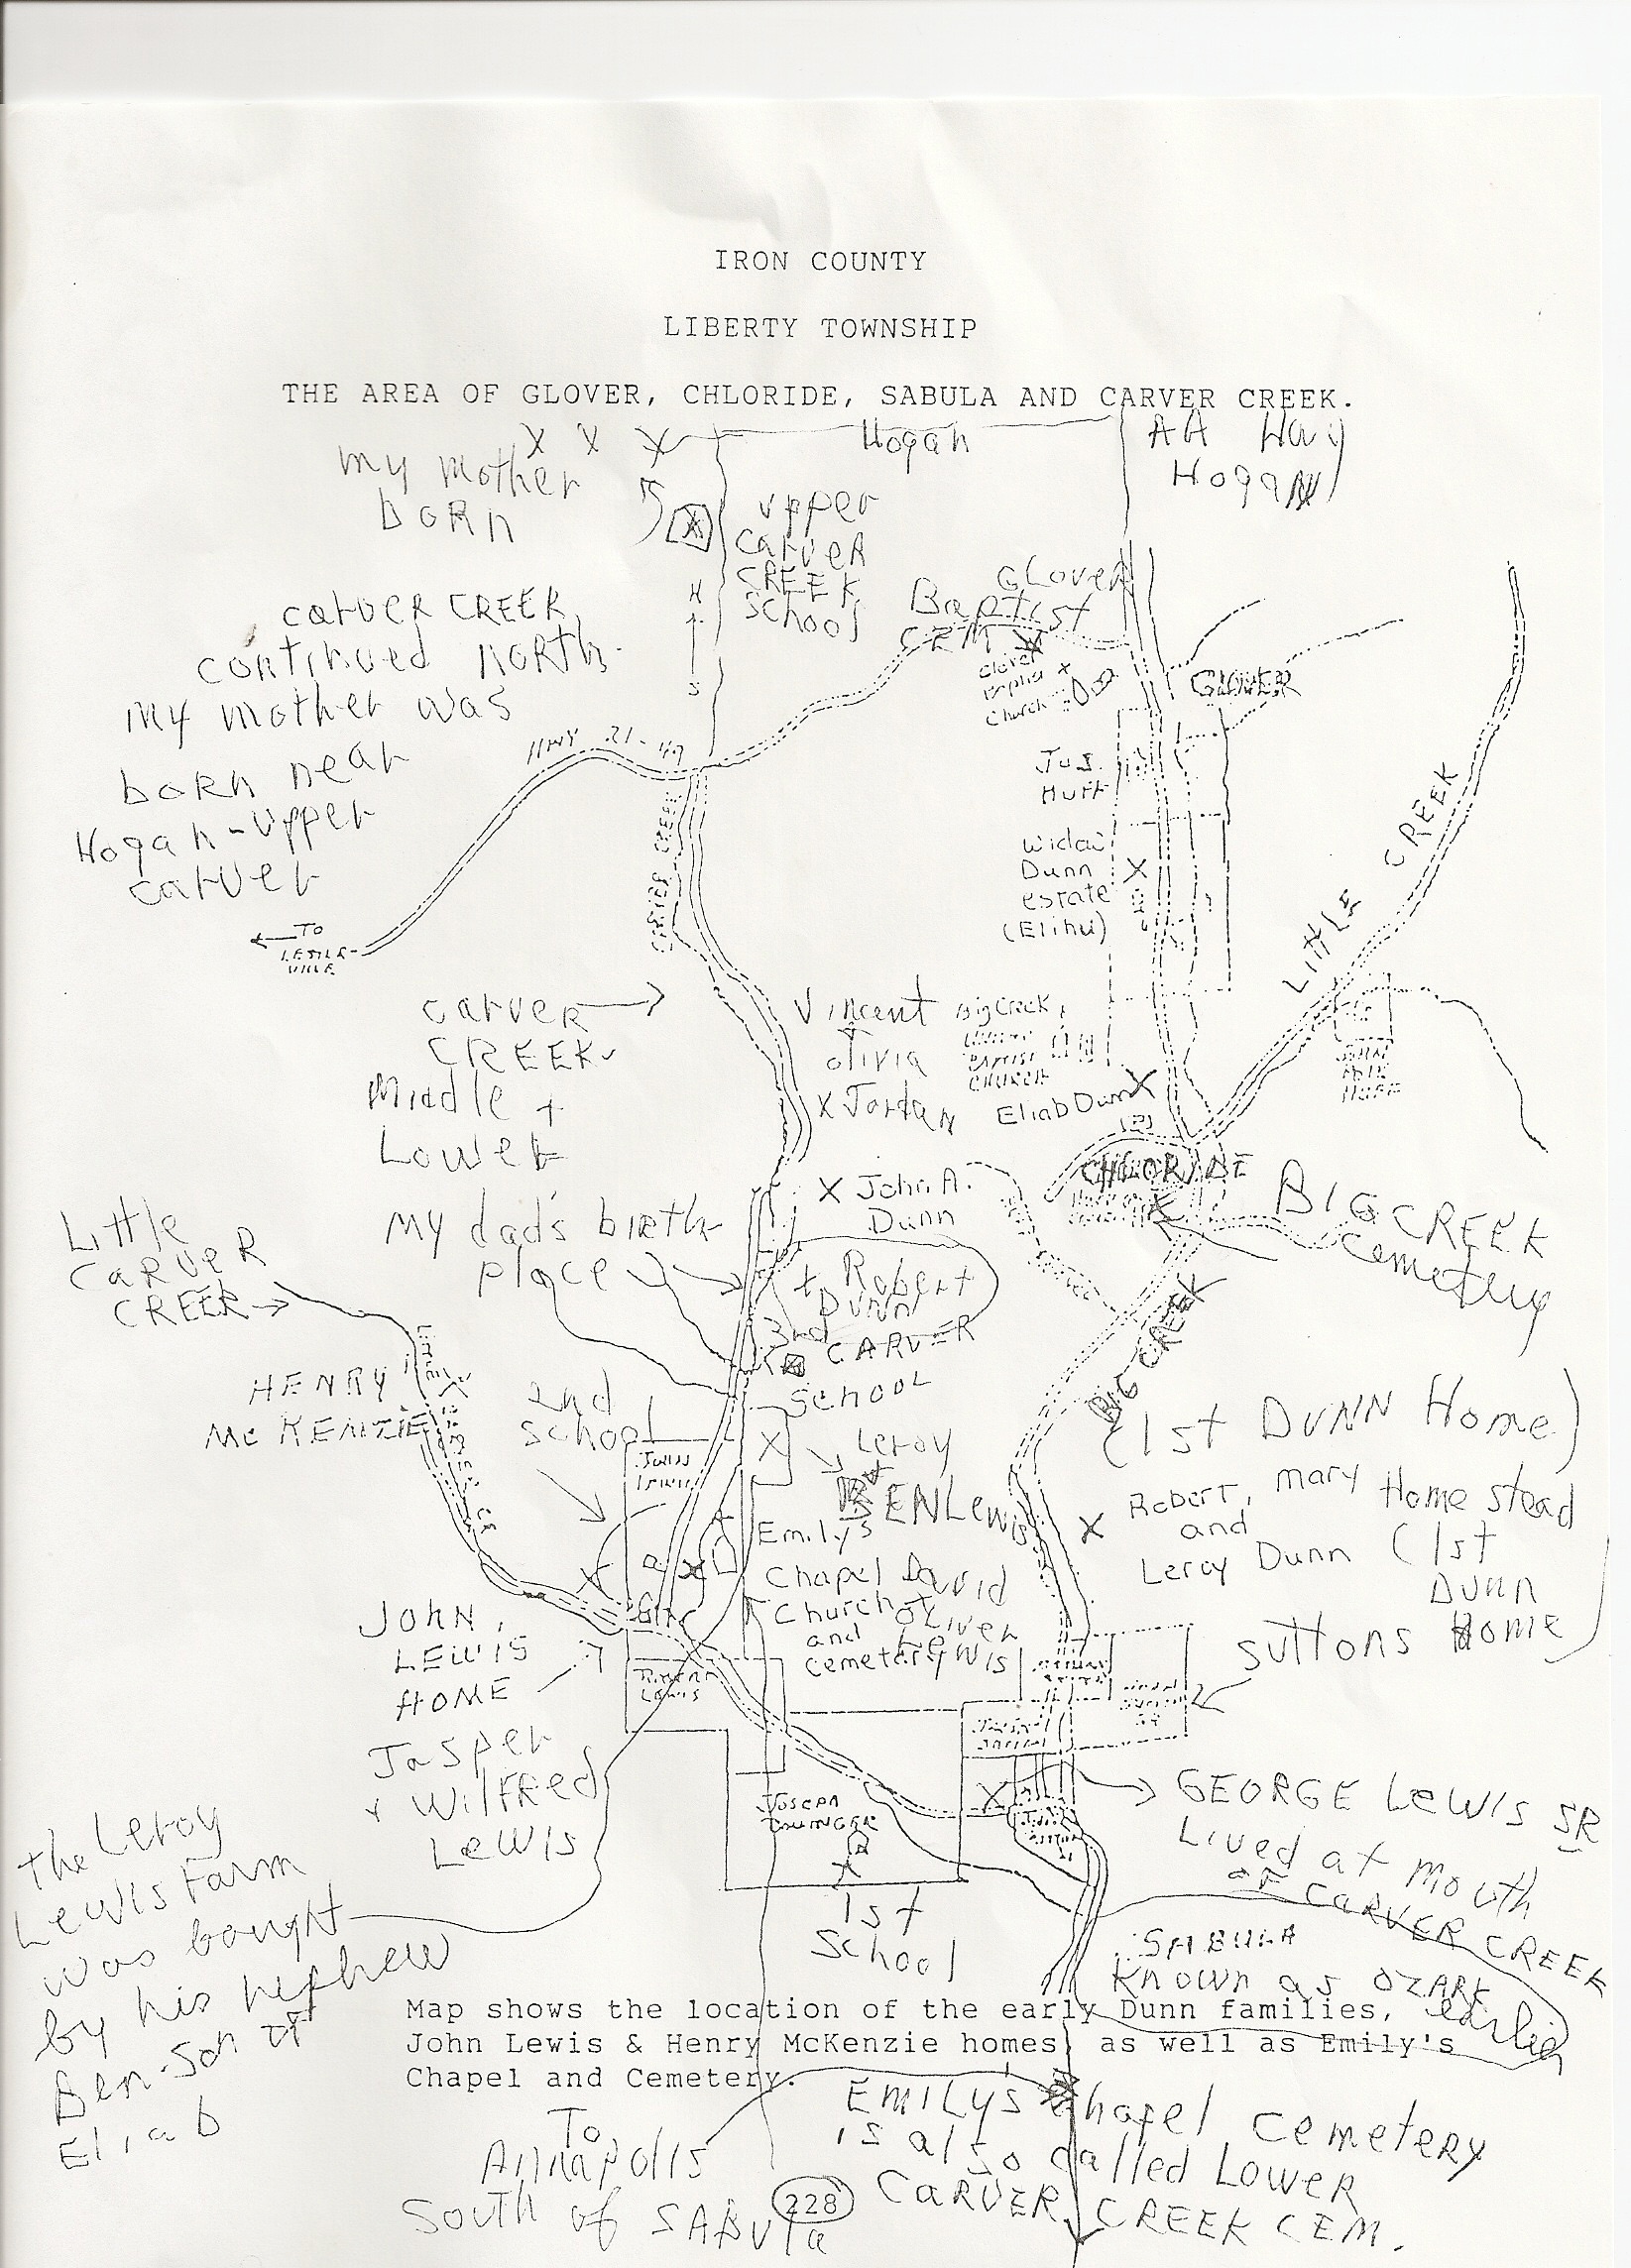 IRON COUNTY
LIBERTY TOWNSHIP
THE AREA OF GLOVER, CHLORIDE, SABULA AND CARVER CREEK.
X X X
Hogan
AA Hwy
Hogan
my mother
born
Upper
Carver
CREEK
School
N
S
Glover
Baptist
CEM
Church
GLOVER
carver CREEK
continued north
my mother was
born near
Hogan-Upper
carver
HWY 21-49
TO
LESTER-
VILLE
CARVER CREEK
Jos.
Huff
Widow
Dunn
estate
(Elihu)
X
LITTLE CREEK
carver
CREEK
Middle +
Lower
Vincent
Olivia
X Jordan
Big Creek
BAPTIST
CHURCH
Eliab Dunn X
HUFF
CHLORIDE
BIG CREEK
Cemetery
X John A.
Dunn
my dad's birth
place
Robert
Dunn
Little
Carver
CREEK
LITTLE CARVER CR
BIG CREEK
3rd
CARVER
SCHOOL
HENRY
McKENZIE
2nd
School
JOHN
LEWIS
X
Leroy
BEN Lewis
(1st DUNN Home)
X Robert, mary Home stead
and
Leroy Dunn (1st
Dunn
Home)
Emily's
Chapel
Church
and
cemetery
David
Oliver
Lewis
JOHN
LEWIS
HOME
LEWIS
Suttons
Jasper
+ Wilfred
Lewis
JOSEPH
X
GEORGE LEWIS SR
Lived at mouth
of CARVER CREEK
The Leroy
Lewis Farm
was bought
by his nephew
Ben-Son of
Eliab
X
1st
School
SABULA
Known as OZARK
earlier
Map shows the location of the early Dunn families,
John Lewis & Henry McKenzie homes, as well as Emily's
Chapel and Cemetery.
To
Annapolis
South of SABULA
EMILY'S Chapel Cemetery
is also called Lower
CARVER CREEK CEM.
228